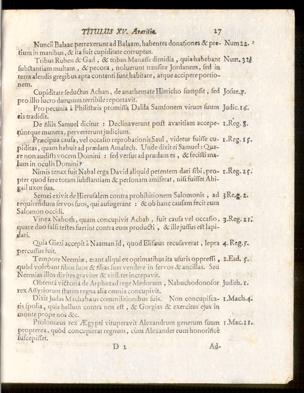 TITULUS XV. Avaritia. 27
Nuncii Balaac perrexerunt ad Balaam, habentes donationes & pre- Num 22.
tium in manibus, & ita fuit cupiditate corruptus.
Tribus Ruben & Gad, & tribus Manasse dimidia, quia habebant Num. 32.
substantiam multam, & pecora, noluerunt transire Jordanem, sed in
terra alendis gregibus apta contenti sunt habitare, atque accipere portio-
nem.
Cupiditate seductus Achan, de anathemate Hiericho sumpsit, sed Josue. 7.
pro illo lucro damnum terribile reportavit.
Pro pecunia à Philistæis promissa Dalida Samsonem virum suum Judic. 16.
eis tradidit.
De filiis Samuel dicitur : Declinaverunt post avaritiam accepe- 1. Reg. 8.
runtque munera, perverterunt judicium.
Præcipua causa, vel occasio reprobationis Saul, videtur fuisse cu- 1. Reg. 15.
piditas, quam habuit ad prædam Amalech. Unde dixit ei Samuel : Qua-
re non audisti vocem Domini : sed versus ad prædam es, & fecisti ma-
lum in oculis Domini?
Nimis tenax fuit Nabal erga David aliquid petentem dari sibi, pro-
pter quod fere totam substantiam & personam amisisset, nisi fuisset Abi-
gail uxor sua.
Semei exivit de Hierusalem contra prohibitionem Salomonis, ad 3. Reg. 2.
requirendum servos suos, qui aufugerant : & ob hanc causam fecit eum
Salomon occidi.
Vinea Naboth, quam concupivit Achab, fuit causa vel occasio, 3. Reg. 21.
quare duo falsi testes fuerint contra eum producti, & ille justus est lapi-
dari.
Quia Giezi accepit à Naaman id, quod Elisæus recusaverat, lepra 4. Reg. 5.
percussus fuit.
Tempore Neemiæ, erant aliqui et optimatibus ita usuris oppressi, 2. Esd. 5.
quod volebant filios suos & filias suas vendere in servos & ancillas. Seu
Neemias illos divites graviter & viriliter increpavit.
Obtenta victoria de Arphaxad rege Medorum, Nabuchodonosor Judith. 1.
rex Assyriorum statim regna alia omnia concupivit.
Dixit Judas Machabæus commilitonibus suis. Non concupisca- 1. Mach. 4.
tis spolia, quia bellum contra nos est, & Gorgias & exercitus ejus in
monte prope nos &c.
Ptolomæus rex Ægypti vituperavit Alexandrum generum suum 1. Mac. 11.
propterea, quod concupierat regnum, cum Alexander eum honorifice
suscepisset.
D 2 Ad-